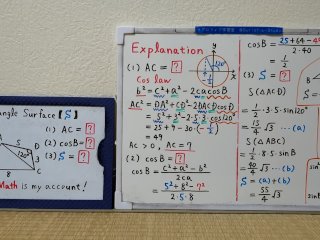 angle Surface [S]
(1) AC = [?]
(2) cosB = [?]
(3) S = [?]
5
120°
3
8
D
C
Math is my account!
Explanation
(1) AC = [?]
Cos law
b² = C² + a² - 2cacosB
AC² = DA² + CD² - 2DACDcosD
= 5² + 3² - 2·5·3·cos120°
= 25 + 9 - 30·(-1/2)
= 49
AC > 0, AC = 7
(2) cosB = [?]
cosB = (C² + a² - b²)/2ca
= (5² + 8² - 7²)/2·5·8
y
120°
x
-1/2
cosB = (25+64-4
2·40
(3) S = [?]
S(△ACD)
= 1/2·3·5·sin120°
= 15/4 √3 ...(a)
S(△ABC)
= 1/2·8·5·sinB
= 40/4 √3 ...(b)
S = (a)+(b)
= 55/4 √3
sin²
sinB